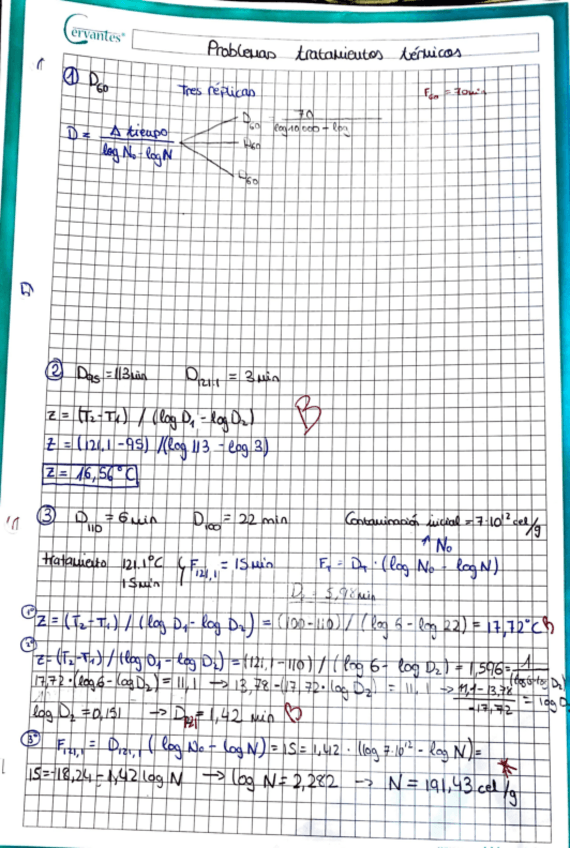 Cervantes
Problemas tratamientos térmicos
① D60 Tres réplicas F60 = 70min
D = Δ tiempo / log N₀ - log N
D60 = 70 / log 10000 - log
D60
D60
② D95 = 113min D121.1 = 3 min
z = (T₂-T₁) / (log D₁ - log D₂) B
z = (121,1 - 95) / (log 113 - log 3)
z = 16,56°C
③ D110 = 6 min D100 = 22 min Contaminación inicial = 7·10¹² cel/g
↑ N₀
tratamiento 121.1°C F121,1 = 15 min FT = DT · (log N₀ - log N)
15min
= 5,98min
1º Z = (T₂-T₁) / (log D₁ - log D₂) = (100-110) / (log 6 - log 22) = 17,72°C
2º Z = (T₂-T₁) / (log D₁ - log D₂) = (121,1 - 110) / (log 6 - log D₂) = 1,596 = 1 / (log 6 - log D₂)
17,72 · (log 6 - log D₂) = 11,1 → 13,78 - (17,72 · log D₂) = 11,1 → 11,1 - 13,78 / -17,72 = log D
log D₂ = 0,151 → D121 = 1,42 min B
3º F121,1 = D121,1 (log N₀ - log N) = 15 = 1,42 · (log 7·10¹² - log N) =
15 = -18,24 - 1,42 log N → log N = 2,282 → N = 191,43 cel/g